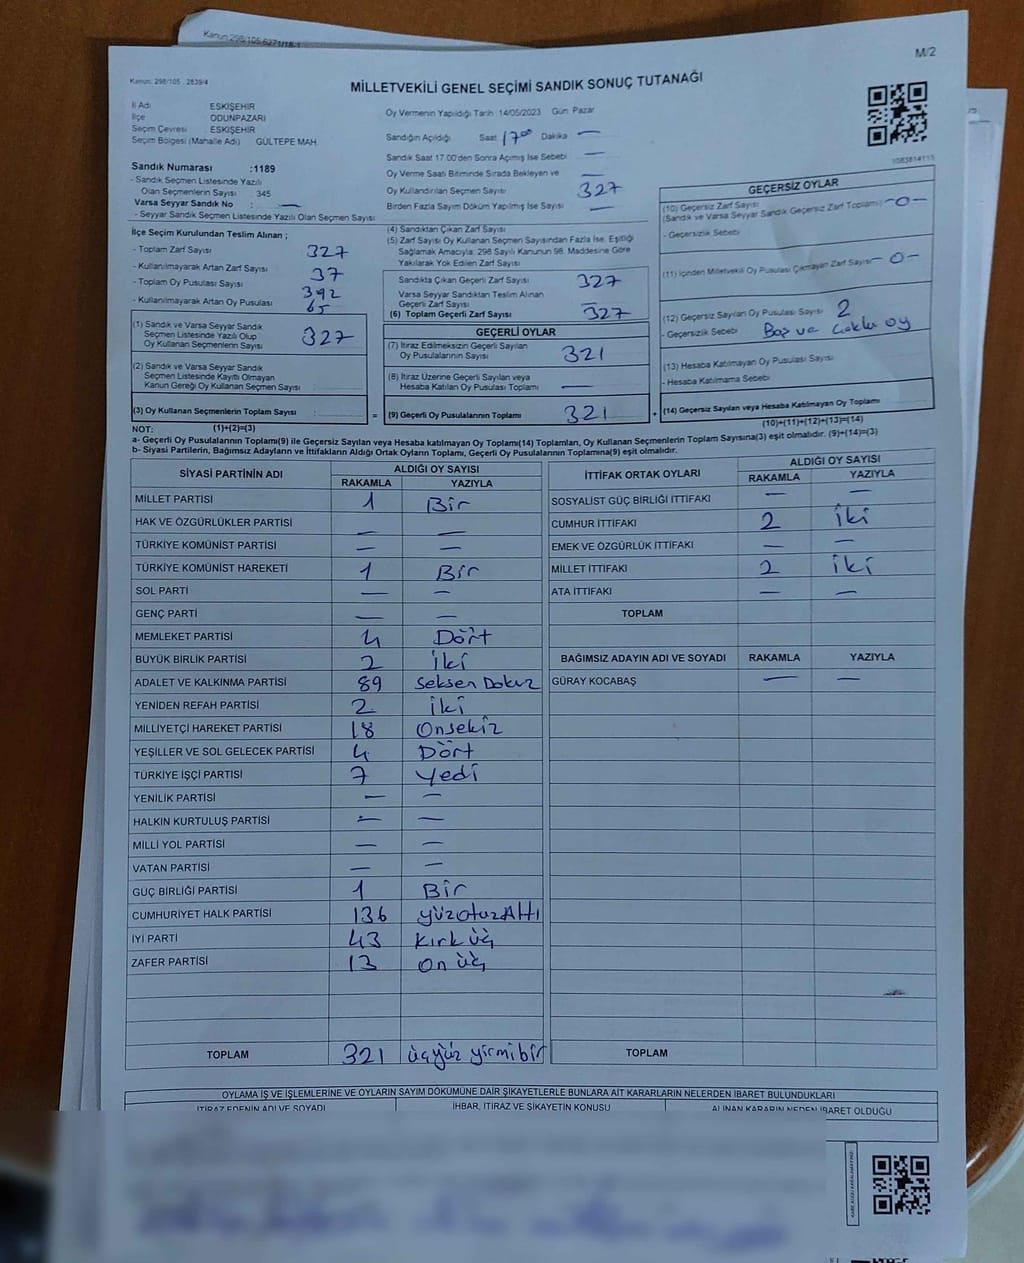 Kanun: 298/105
M/2
Kanun: 298/105 , 2839/4
MİLLETVEKİLİ GENEL SEÇİMİ SANDIK SONUÇ TUTANAĞI
İl Adı ESKİŞEHİR
İlçe ODUNPAZARI
Seçim Çevresi ESKİŞEHİR
Seçim Bölgesi (Mahalle Adı) GÜLTEPE MAH.
Sandık Numarası :1189
- Sandık Seçmen Listesinde Yazılı
Olan Seçmenlerin Sayısı 345
Varsa Seyyar Sandık No : —
- Seyyar Sandık Seçmen Listesinde Yazılı Olan Seçmen Sayısı
Oy Vermenin Yapıldığı Tarih :14/05/2023 Gün: Pazar
Sandığın Açıldığı Saat 17.00 Dakika —
Sandık Saat 17.00'den Sonra Açılmış İse Sebebi —
Oy Verme Saati Bitiminde Sırada Bekleyen ve —
Oy Kullandırılan Seçmen Sayısı 327
Birden Fazla Sayım Döküm Yapılmış İse Sayısı —
1083814115
İlçe Seçim Kurulundan Teslim Alınan ;
- Toplam Zarf Sayısı 327
- Kullanılmayarak Artan Zarf Sayısı 37
- Toplam Oy Pusulası Sayısı 392
- Kullanılmayarak Artan Oy Pusulası 65
(1) Sandık ve Varsa Seyyar Sandık
Seçmen Listesinde Yazılı Olup
Oy Kullanan Seçmenlerin Sayısı 327
(2) Sandık ve Varsa Seyyar Sandık
Seçmen Listesinde Kayıtlı Olmayan
Kanun Gereği Oy Kullanan Seçmen Sayısı :
(3) Oy Kullanan Seçmenlerin Toplam Sayısı :
(4) Sandıktan Çıkan Zarf Sayısı
(5) Zarf Sayısı Oy Kullanan Seçmen Sayısından Fazla İse, Eşitliği
Sağlamak Amacıyla; 298 Sayılı Kanunun 98. Maddesine Göre
Yakılarak Yok Edilen Zarf Sayısı
Sandıkta Çıkan Geçerli Zarf Sayısı 327
Varsa Seyyar Sandıktan Teslim Alınan
Geçerli Zarf Sayısı —
(6) Toplam Geçerli Zarf Sayısı 327
GEÇERLİ OYLAR
(7) İtiraz Edilmeksizin Geçerli Sayılan
Oy Pusulalarının Sayısı 321
(8) İtiraz Üzerine Geçerli Sayılan veya
Hesaba Katılan Oy Pusulası Toplamı —
= (9) Geçerli Oy Pusulalarının Toplamı 321
GEÇERSİZ OYLAR
(10) Geçersiz Zarf Sayısı
(Sandık ve Varsa Seyyar Sandık Geçersiz Zarf Toplamı) -0-
- Geçersizlik Sebebi
(11) İçinden Milletvekili Oy Pusulası Çıkmayan Zarf Sayısı -0-
(12) Geçersiz Sayılan Oy Pusulası Sayısı 2
- Geçersizlik Sebebi Boş ve çoklu oy
(13) Hesaba Katılmayan Oy Pusulası Sayısı
- Hesaba Katılmama Sebebi
+ (14) Geçersiz Sayılan veya Hesaba Katılmayan Oy Toplamı
NOT: (1)+(2)=(3) (10)+(11)+(12)+(13)=(14)
a- Geçerli Oy Pusulalarının Toplamı(9) ile Geçersiz Sayılan veya Hesaba katılmayan Oy Toplamı(14) Toplamları, Oy Kullanan Seçmenlerin Toplam Sayısına(3) eşit olmalıdır. (9)+(14)=(3)
b- Siyasi Partilerin, Bağımsız Adayların ve İttifakların Aldığı Ortak Oyların Toplamı, Geçerli Oy Pusulalarının Toplamına(9) eşit olmalıdır.
SİYASİ PARTİNİN ADI ALDIĞI OY SAYISI
RAKAMLA YAZIYLA
MİLLET PARTİSİ 1 Bir
HAK VE ÖZGÜRLÜKLER PARTİSİ — —
TÜRKİYE KOMÜNİST PARTİSİ — —
TÜRKİYE KOMÜNİST HAREKETİ 1 Bir
SOL PARTİ — —
GENÇ PARTİ — —
MEMLEKET PARTİSİ 4 Dört
BÜYÜK BİRLİK PARTİSİ 2 İki
ADALET VE KALKINMA PARTİSİ 89 Seksen Dokuz
YENİDEN REFAH PARTİSİ 2 iki
MİLLİYETÇİ HAREKET PARTİSİ 18 Onsekiz
YEŞİLLER VE SOL GELECEK PARTİSİ 4 Dört
TÜRKİYE İŞÇİ PARTİSİ 7 Yedi
YENİLİK PARTİSİ — —
HALKIN KURTULUŞ PARTİSİ — —
MİLLİ YOL PARTİSİ — —
VATAN PARTİSİ — —
GÜÇ BİRLİĞİ PARTİSİ 1 Bir
CUMHURİYET HALK PARTİSİ 136 YüzotuzAltı
İYİ PARTİ 43 Kırk üç
ZAFER PARTİSİ 13 On üç
TOPLAM 321 üçyüz yirmibir
İTTİFAK ORTAK OYLARI ALDIĞI OY SAYISI
RAKAMLA YAZIYLA
SOSYALİST GÜÇ BİRLİĞİ İTTİFAKI — —
CUMHUR İTTİFAKI 2 iki
EMEK VE ÖZGÜRLÜK İTTİFAKI — —
MİLLET İTTİFAKI 2 iki
ATA İTTİFAKI — —
TOPLAM
BAĞIMSIZ ADAYIN ADI VE SOYADI RAKAMLA YAZIYLA
GÜRAY KOCABAŞ — —
TOPLAM
OYLAMA İŞ VE İŞLEMLERİNE VE OYLARIN SAYIM DÖKÜMÜNE DAİR ŞİKAYETLERLE BUNLARA AİT KARARLARIN NELERDEN İBARET BULUNDUKLARI
İTİRAZ EDENİN ADI VE SOYADI İHBAR, İTİRAZ VE ŞİKAYETİN KONUSU ALINAN KARARIN NEDEN İBARET OLDUĞU